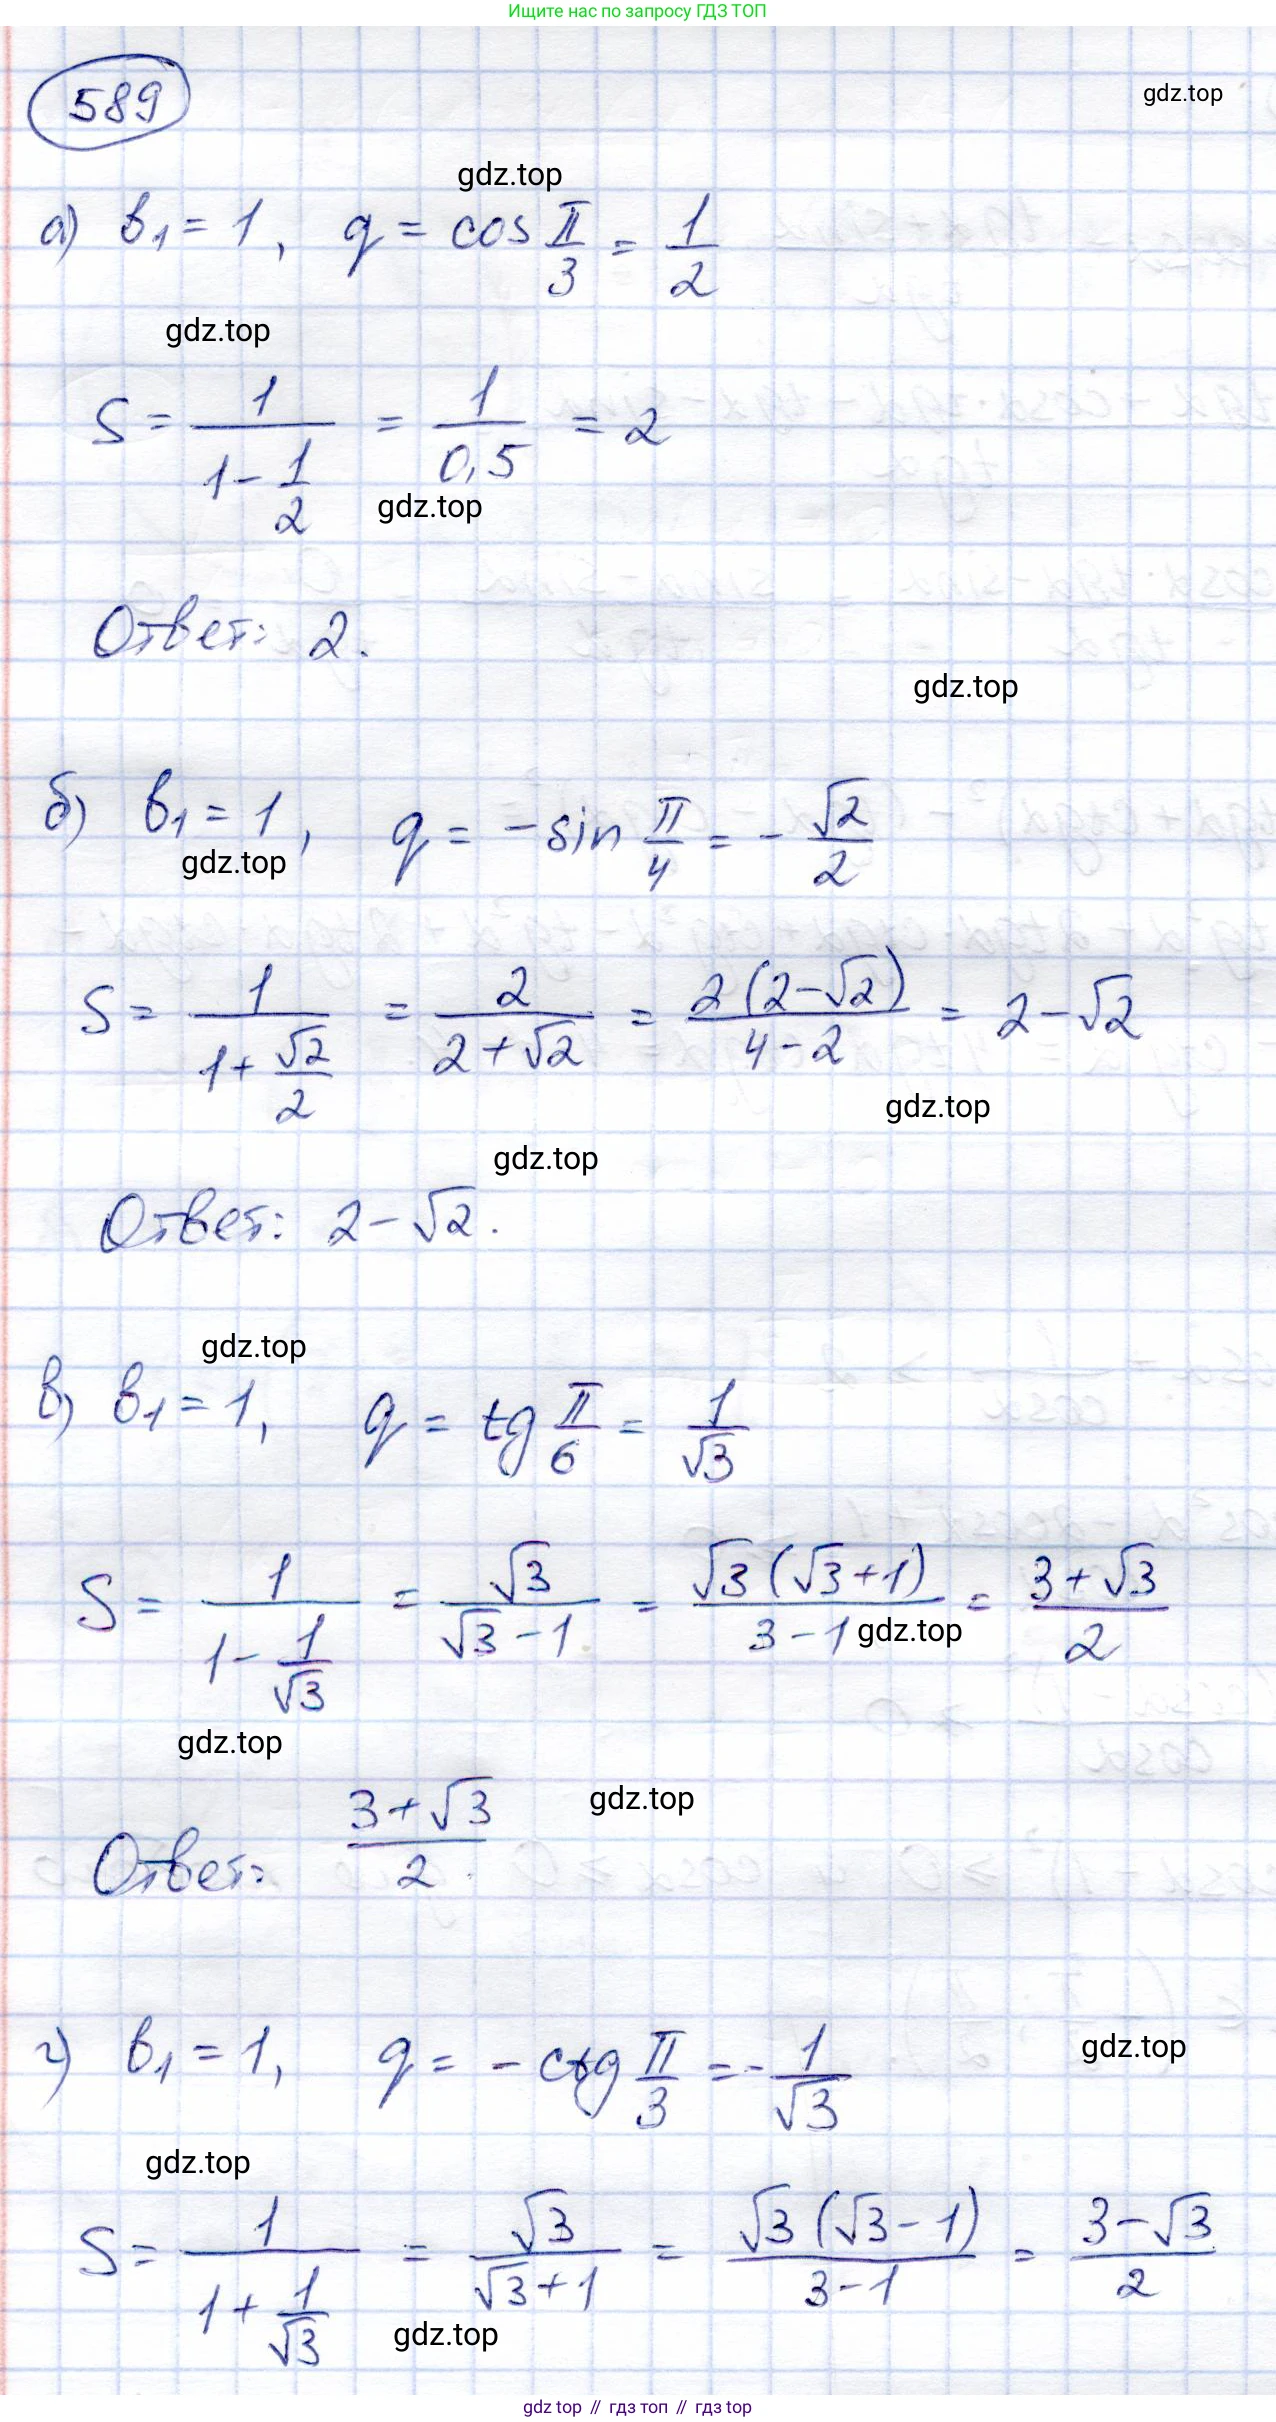 Ищите нас по запросу ГДЗ ТОП
589
gdz.top
gdz.top
а) b₁ = 1, q = cos π/3 = 1/2
gdz.top
S = 1/(1 - 1/2) = 1/0,5 = 2
gdz.top
Ответ: 2.
gdz.top
б) b₁ = 1, q = -sin π/4 = -√2/2
gdz.top
S = 1/(1 + √2/2) = 2/(2 + √2) = 2(2 - √2)/(4 - 2) = 2 - √2
gdz.top
gdz.top
Ответ: 2 - √2.
gdz.top
в) b₁ = 1, q = tg π/6 = 1/√3
S = 1/(1 - 1/√3) = √3/(√3 - 1) = √3(√3 + 1)/(3 - 1) = (3 + √3)/2
gdz.top
gdz.top
gdz.top
Ответ: (3 + √3)/2.
г) b₁ = 1, q = -ctg π/3 = -1/√3
gdz.top
gdz.top
S = 1/(1 + 1/√3) = √3/(√3 + 1) = √3(√3 - 1)/(3 - 1) = (3 - √3)/2
gdz.top
gdz top // гдз топ // гдз top